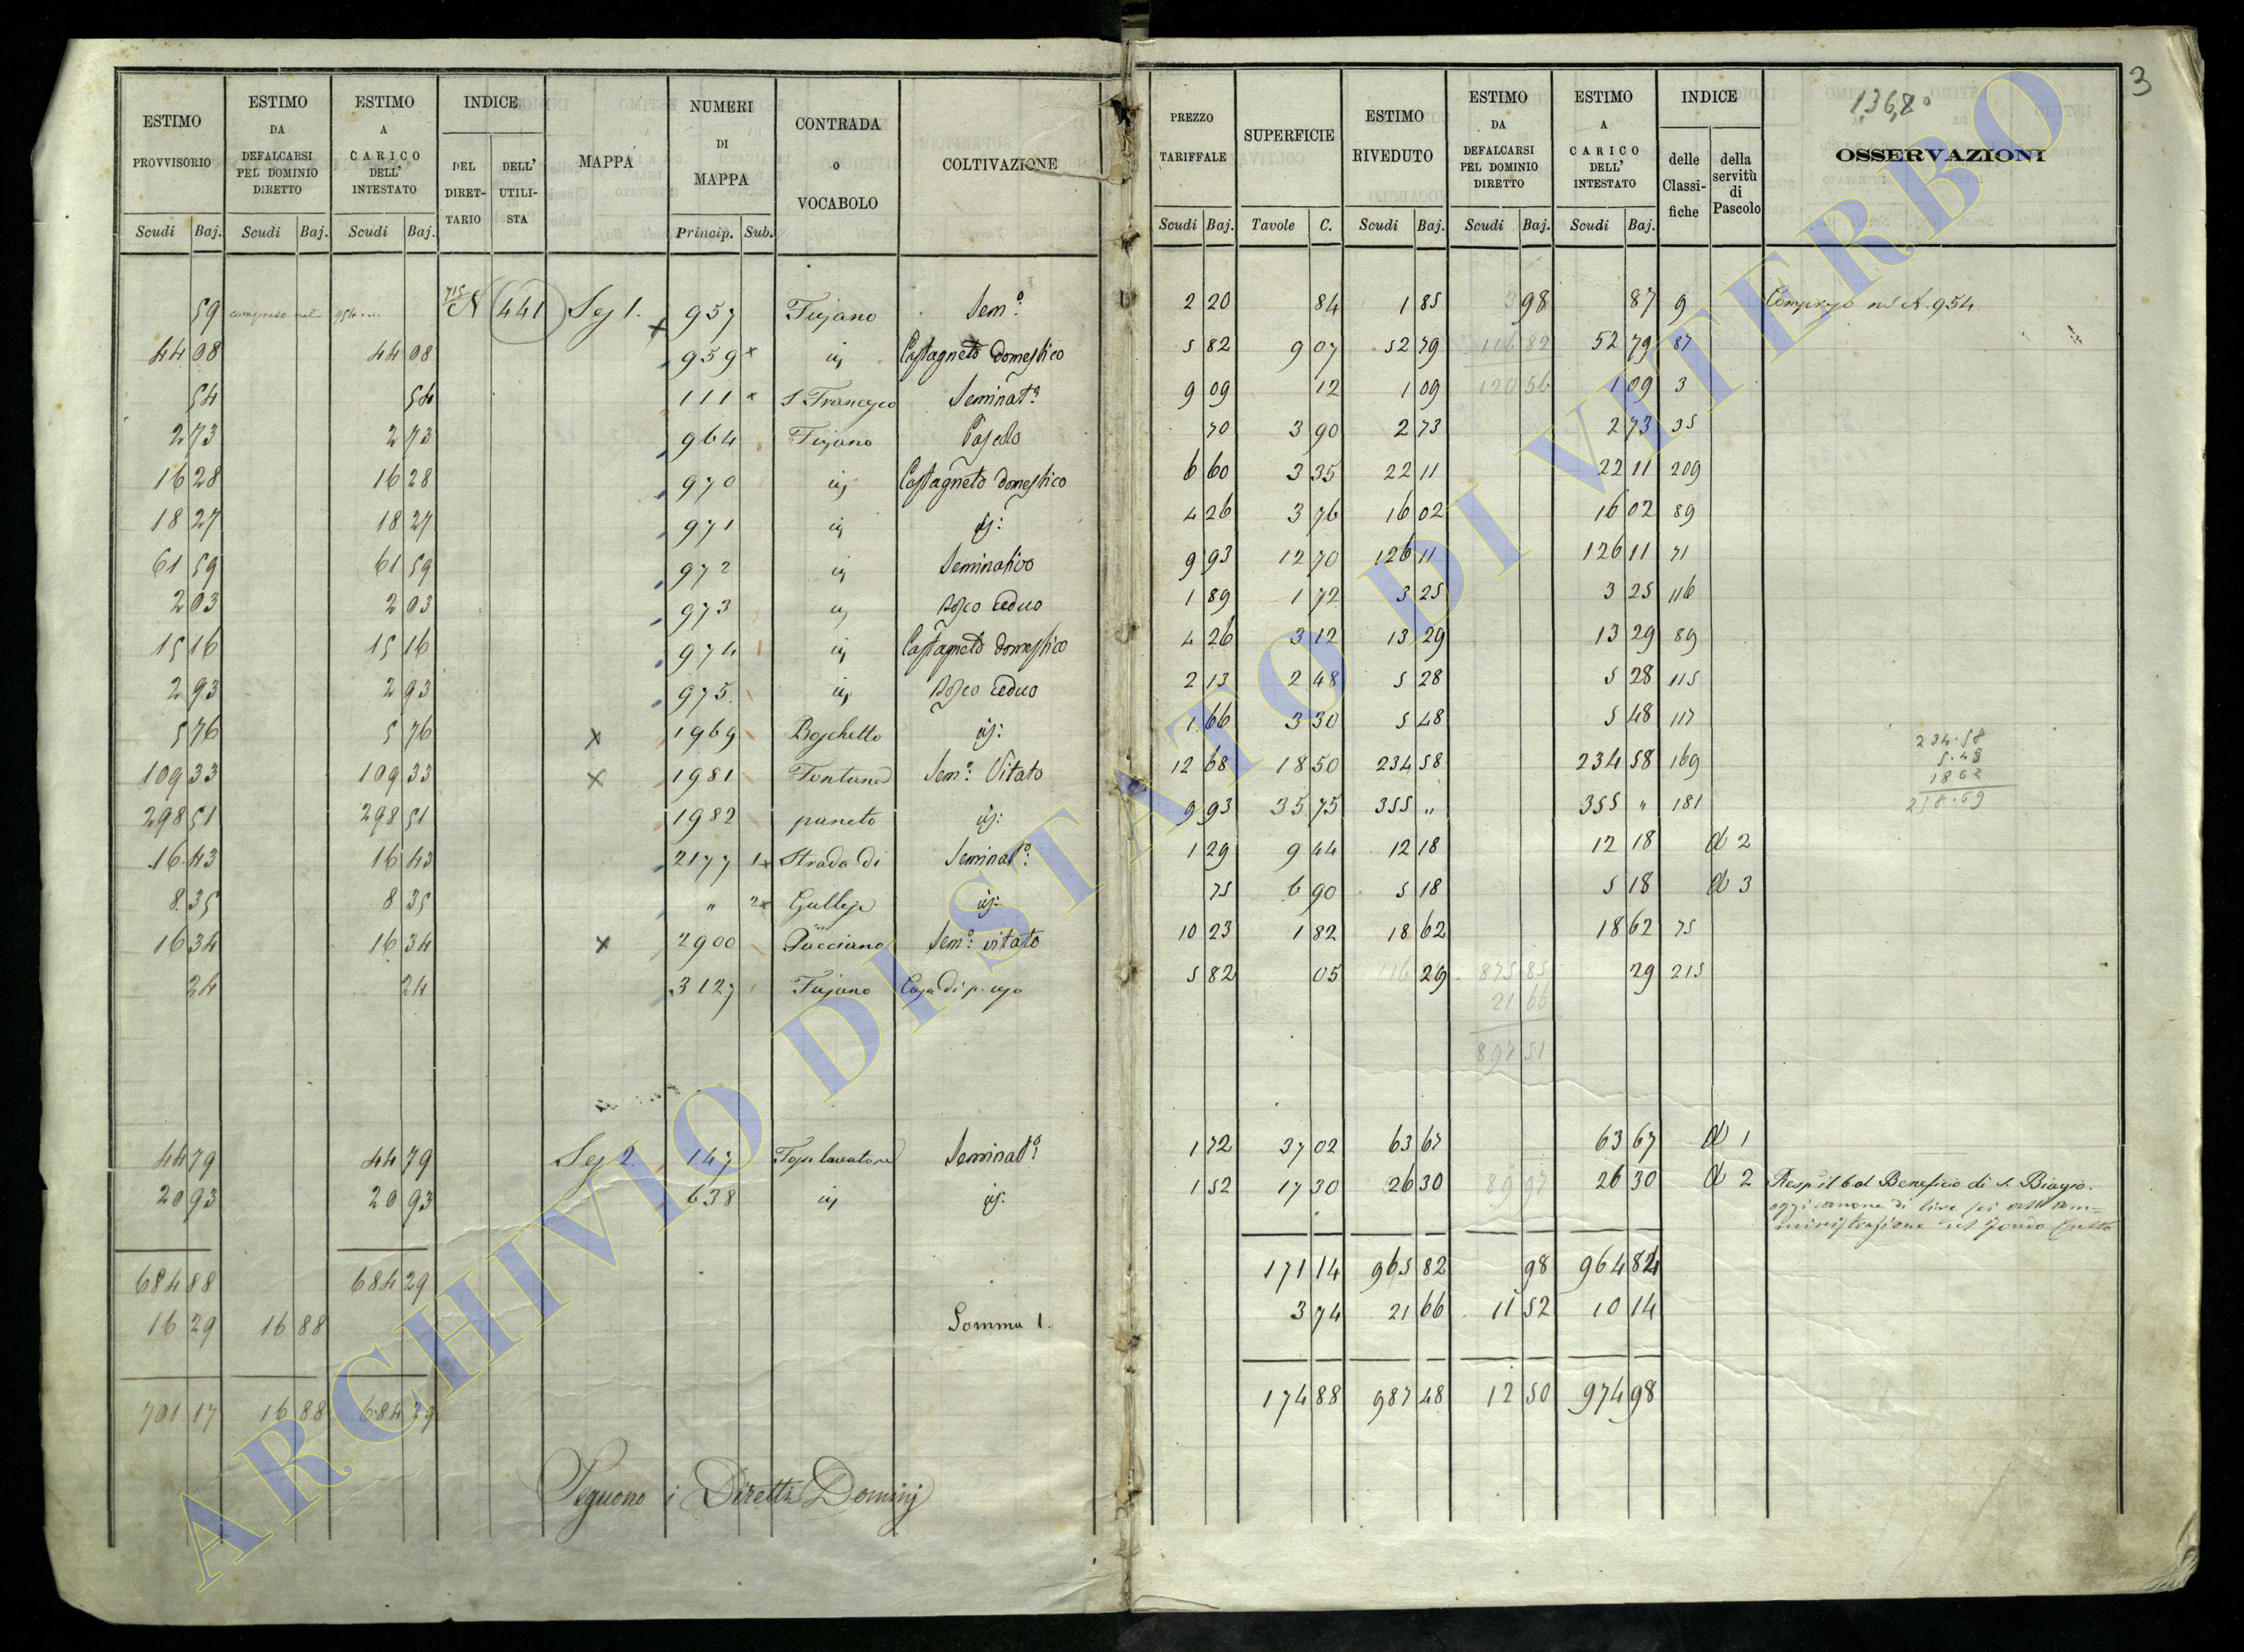 ESTIMO PROVVISORIO Scudi Baj. | ESTIMO DA DEFALCARSI PEL DOMINIO DIRETTO Scudi Baj. | ESTIMO A CARICO DELL' INTESTATO Scudi Baj. | INDICE DEL DIRETTARIO DELL' UTILISTA | MAPPA | NUMERI DI MAPPA Princip. Sub. | CONTRADA o VOCABOLO | COLTIVAZIONE
59 compreso nel 954 N 441 Sez 1. 957 Fujano Sem.º
44 08 44 08 959 id Castagneto domestico
54 54 111 S. Francesco Seminat.º
2 73 2 73 964 Fujano
16 28 16 28 970 id Castagneto domestico
18 27 18 27 971 id id:
61 59 61 59 972 id Seminativo
2 03 2 03 973 id Bosco ceduo
15 16 15 16 974 id Castagneto domestico
2 93 2 93 975 id Bosco ceduo
5 76 5 76 x 1969 Boschetto id:
109 33 109 33 x 1981 Fontana Sem.º Vitato
298 51 298 51 1982 id:
16 43 16 43 2177 1 Strada di Seminat.º:
8 35 8 35 " 2 id:
16 34 16 34 x 2900 Pucciano Sem.º vitato
24 24 3127 Fujano Casa di p. uso
44 79 44 79 Sez 2. 147 Seminat.º
20 93 20 93 638 id id:
684 88 684 29
16 29 16 88 Somma 1.
701 17 16 88 684 29
Seguono i Diretti Dominj
3
1,36,8º
PREZZO TARIFFALE Scudi Baj. | SUPERFICIE Tavole C. | ESTIMO RIVEDUTO Scudi Baj. | ESTIMO DA DEFALCARSI PEL DOMINIO DIRETTO Scudi Baj. | ESTIMO A CARICO DELL' INTESTATO Scudi Baj. | INDICE delle Classifiche della servitù di Pascolo | OSSERVAZIONI
2 20 84 1 85 98 87 9 Compreso nel N. 954
5 82 9 07 52 79 116 82 52 79 87
9 09 12 1 09 120 56 1 09 3
70 3 90 2 73 2 73 35
6 60 3 35 22 11 22 11 209
4 26 3 76 16 02 16 02 89
9 93 12 70 126 11 126 11 71
1 89 1 72 3 25 3 25 116
4 26 3 12 13 29 13 29 89
2 13 2 48 5 28 5 28 115
1 66 3 30 5 48 5 48 117
12 68 18 50 234 58 234 58 169
9 93 35 75 355 " 355 " 181
234.58
5.48
18 62
258.69
1 29 9 44 12 18 12 18 d 2
75 6 90 5 18 5 18 d 3
10 23 1 82 18 62 18 62 75
5 82 05 29 875 85 29 215
21 66
897 51
1 72 37 02 63 67 63 67 d 1
1 52 17 30 26 30 89 97 26 30 d 2 Beneficio di S. Biagio
oggi canone di lire sei all'am=
ministrazione del fondo Culto
171 14 965 82 98 964 84
3 74 21 66 11 52 10 14
174 88 987 48 12 50 974 98
ARCHIVIO DI STATO DI VITERBO